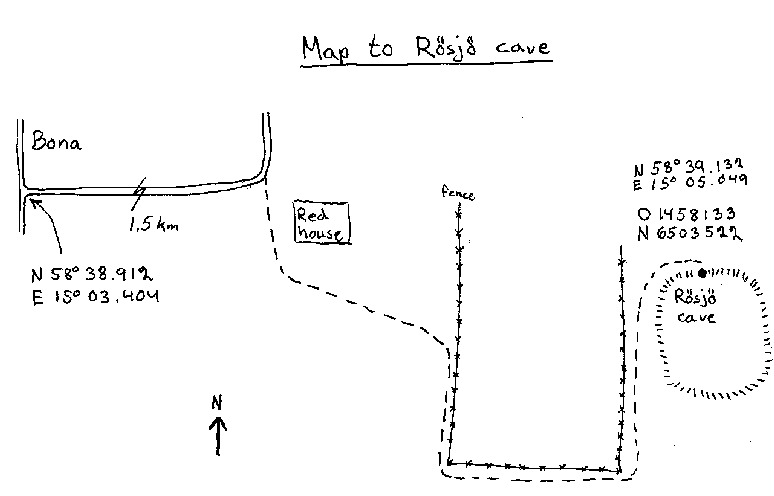 Map to Rösjö cave
Bona
1,5 km
N 58° 38.912
E 15° 03.404
Red
house
fence
N 58° 39.132
E 15° 05.049
O 1458133
N 6503522
Rösjö
cave
N